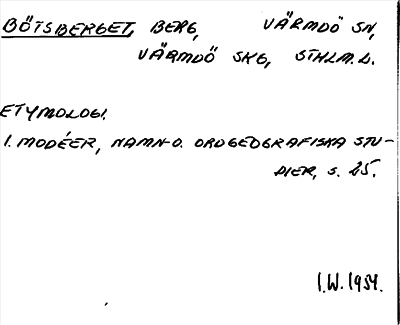 BÖTSBERGET, BERG, VÄRMDÖ SN,
VÄRMDÖ SKG, STHLM.L.
ETYMOLOGI.
I. MODÉER, NAMN- O. ORDGEOGRAFISKA STU-
DIER, S. 25.
I.W. 1954.